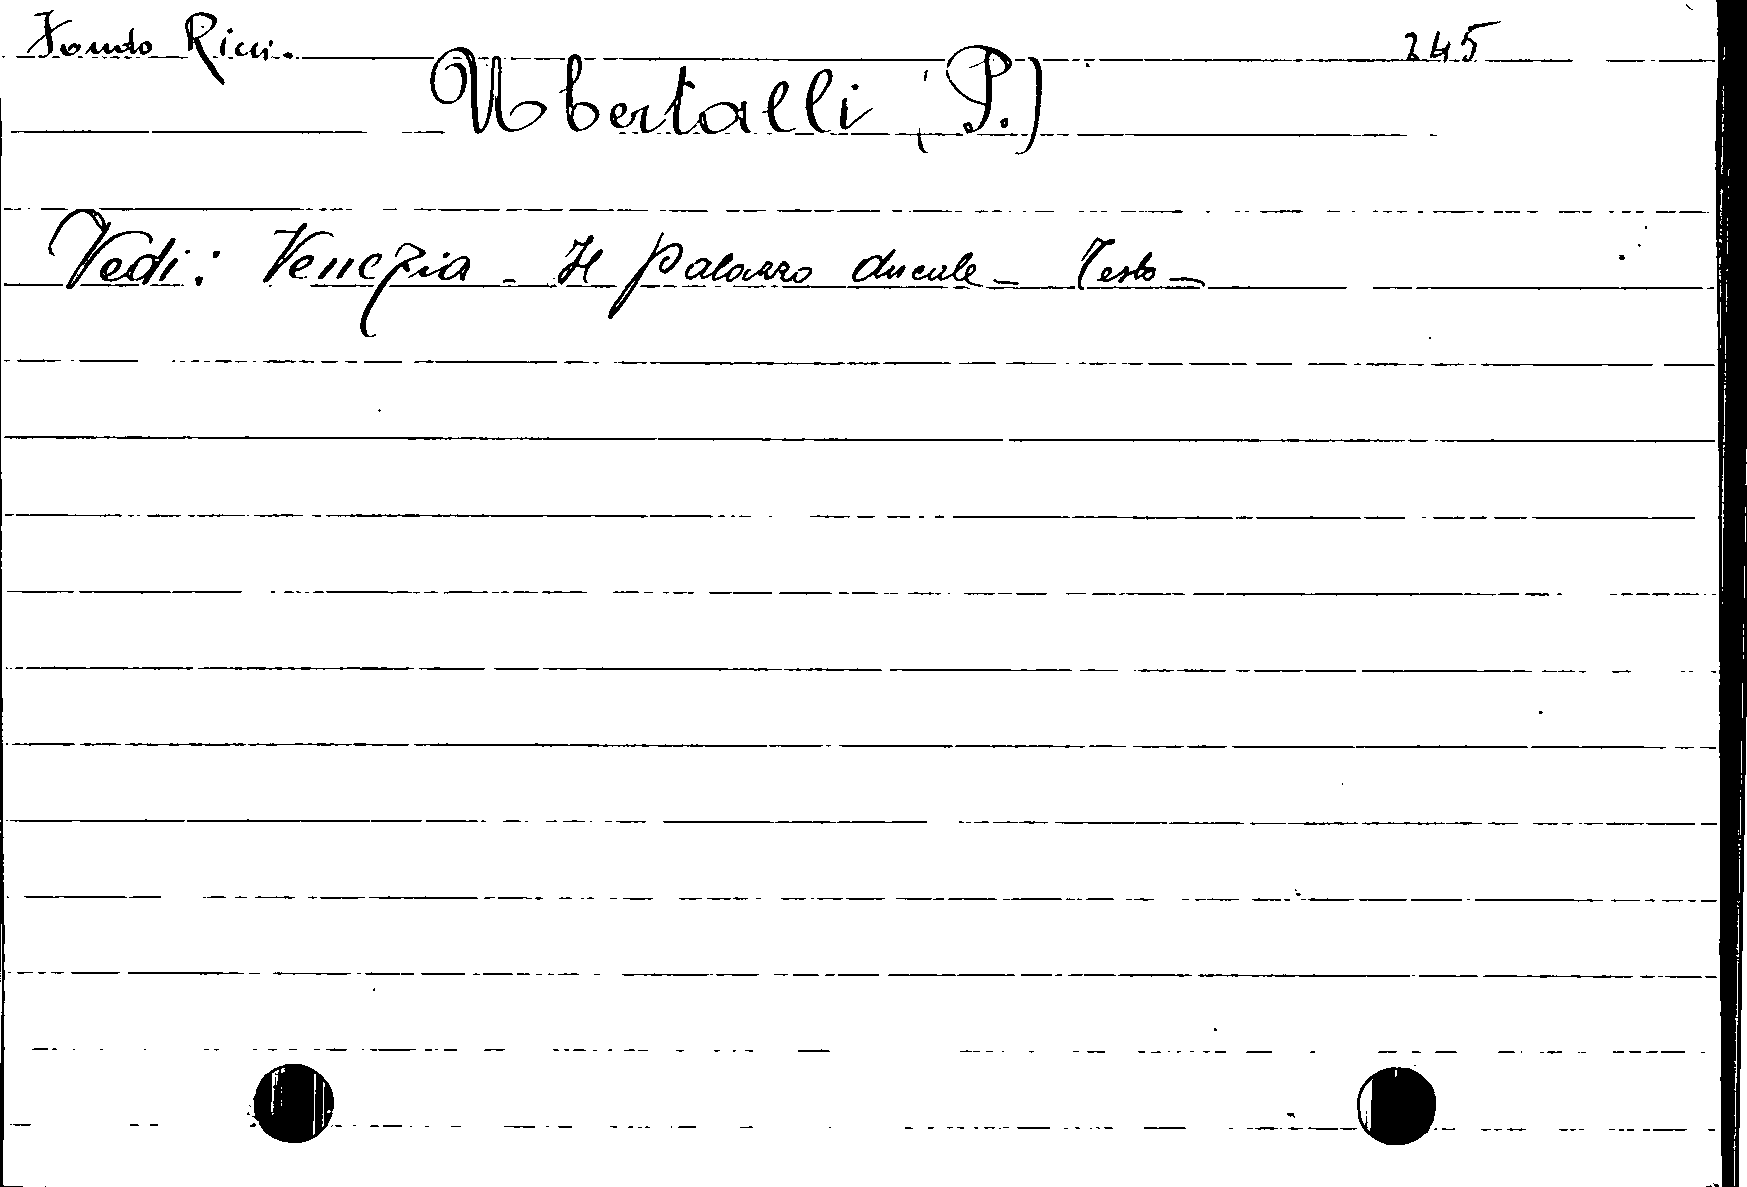 Fondo Ricci. 245
Ubertalli (P.)
Vedi: Venezia - Il palazzo ducale - Testo -